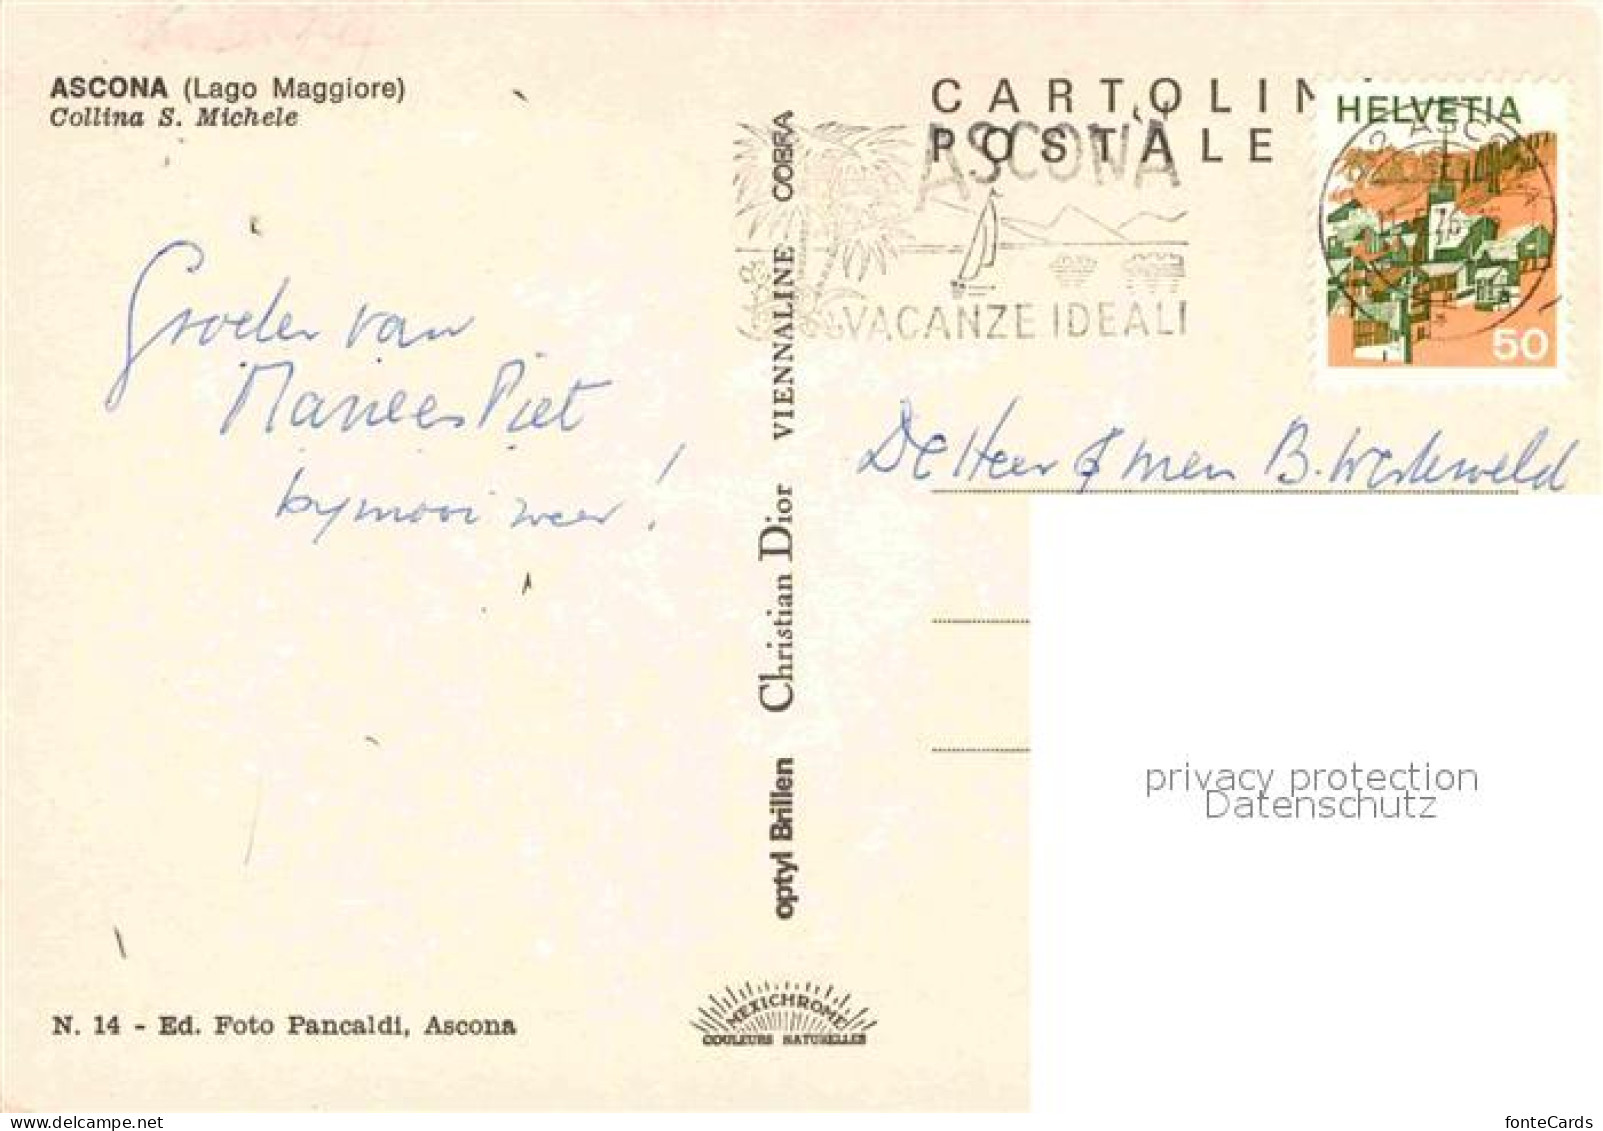 ASCONA (Lago Maggiore)
Collina S. Michele
Groeten van
Marie en Piet
by mooi weer!
N. 14 - Ed. Foto Pancaldi, Ascona
optyl Brillen Christian Dior VIENNALINE COBRA
MEXICHROME
COULEURS NATURELLES
CARTOLIN
POSTALE
ASCONA
VACANZE IDEALI
HELVETIA
ASCO
76
50
De Heer & Mevr B.
privacy protection
Datenschutz
fonteCards